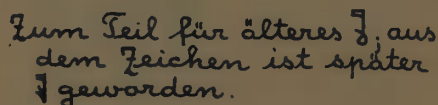 Zum Teil für älteres , aus
dem Zeichen ist später
geworden.